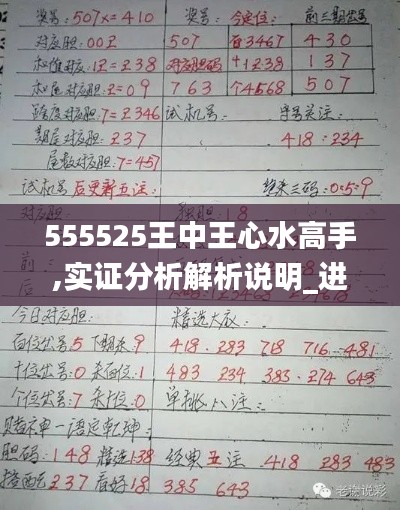 奖号:507x=410 奖号: 今定位: 前三期出号
对应胆:00王 507 百3467 430
权值对应:1王=238 对应胆码 十1238 137
权尾对应胆:2=09 763 个4568 507
对应胆:7=2346 试机号 字号关注:
期尾对应胆:237 418:234
尾数对应胆:7=457
试机号后更新五注: 独来三码:0:5:9
555525王中王心水高手
,实证分析解析说明_进
今日对应胆: 精选大底:
百位出号5下期杀9 418.283 718 716.481
十位出号:0杀百位:1 483 234 383.274 643
个位出号:7杀十位:0 单挑八注:
赌神一语定乾坤:
胆码:148精选138 经典五注 418 283 483
237看好18 385 643
老骆说彩